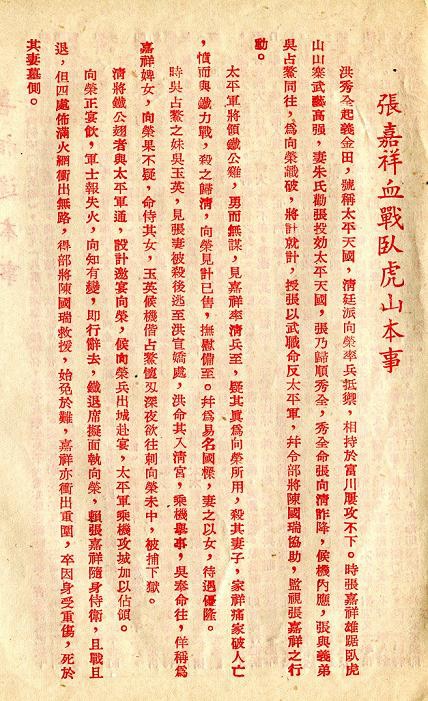 張嘉祥血戰臥虎山本事
洪秀全起義金田，號稱太平天國，清廷派向榮率兵抵禦，相持於富川屢攻不下。時張嘉祥雄踞臥虎
山山寨武藝高强，妻朱氏勸張投効太平天國，張乃歸順秀全，秀全命張向清詐降，候機內應，張與義弟
吳占鰲同往，爲向榮識破，將計就計，授張以武職命反太平軍，幷令部將陳國瑞協助，監視張嘉祥之行
動。
太平軍將領鐵公雞，勇而無謀，見嘉祥率清兵至，疑其眞爲向榮所用，殺其妻子，家祥痛家破人亡
，憤而與鐵力戰，殺之歸清，向榮見計已售，撫慰備至。幷爲易名國樑，妻之以女，待遇優隆。
時吳占鰲之妹吳玉英，見張妻被殺後逃至洪宣嬌處，洪命其入清宮，乘機舉事，吳奉命往，佯稱爲
嘉祥婢女，向榮果不疑，命侍其女，玉英候機偕占鰲懷刄深夜欲往刺向榮未中，被捕下獄。
清將鐵公翅者與太平軍通，設計邀宴向榮，候向榮兵出城赴宴，太平軍乘機攻城加以佔領。
向榮正宴飮，軍士報失火，向知有變，即行辭去，鐵退席擬面執向榮，賴張嘉祥隨身侍衛，且戰且
退，但四處佈滿火網衝出無路，得部將陳國瑞救援，始免於難，嘉祥亦衝出重圍，卒因身受重傷，死於
其妻墓側。